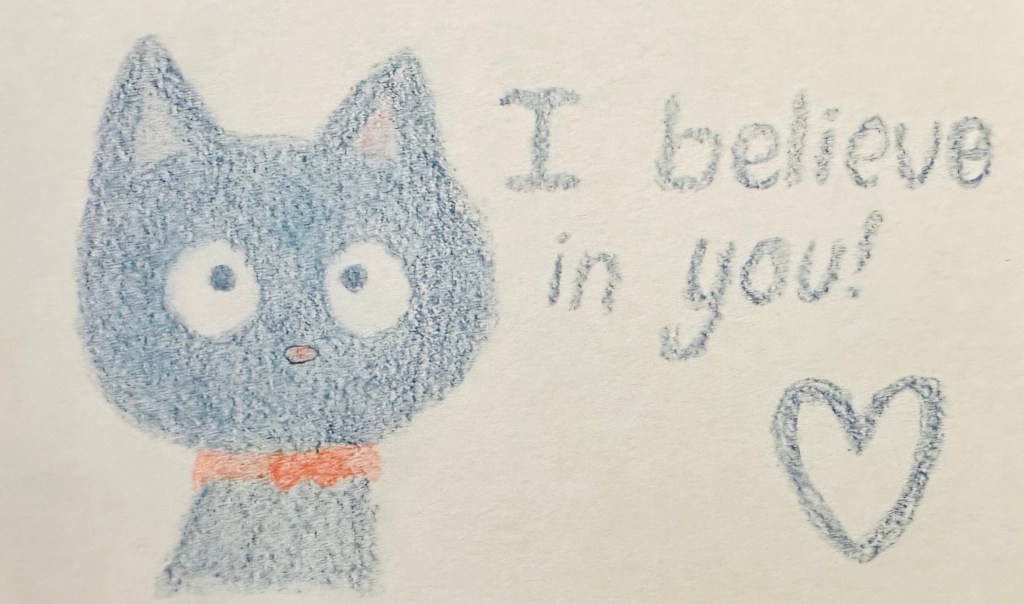 I believe
in you!